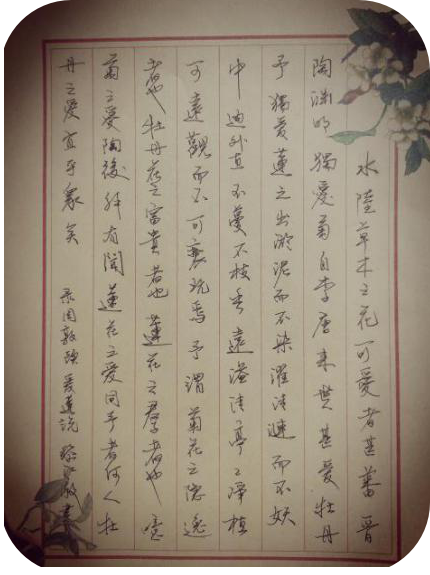 水陸草木之花可愛者甚蕃晋
陶渊明獨愛菊自李唐来世甚愛牡丹
予獨愛蓮之出淤泥而不染濯清漣而不妖
中通外直不蔓不枝香遠溢清亭々淨植
可遠觀而不可褻玩焉予謂菊花之隐逸
者也牡丹花之富貴者也蓮花之君子者也噫
菊之愛陶後鮮有聞蓮花之愛同予者何人牡
丹之爱宜乎衆矣 录周敦頤爱蓮说 敬書